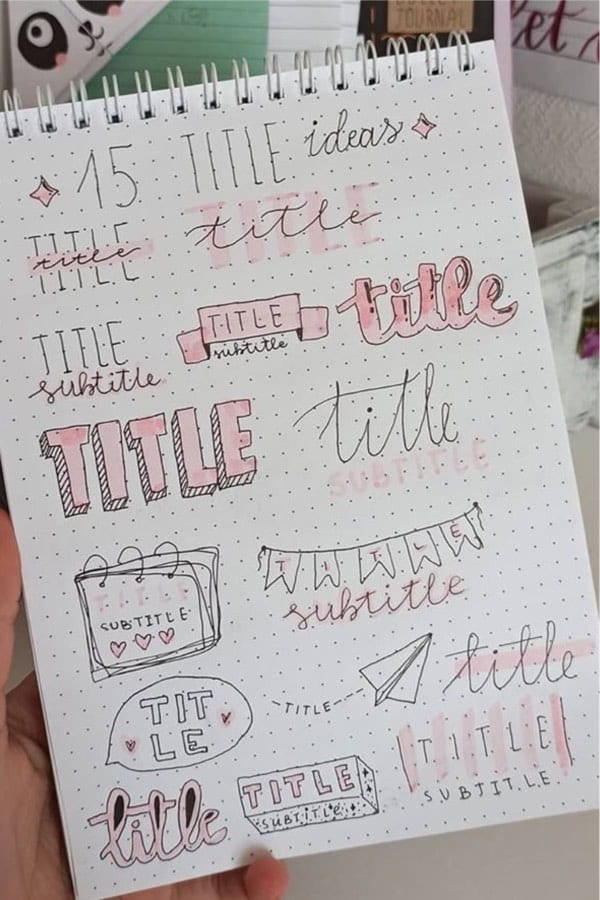 JOURNAL
15 TITLE ideas
TITLE
title
TITLE
title
TITLE
subtitle
TITLE
subtitle
title
TITLE
title
SUBTITLE
TITLE
SUBTITLE
TITLE
subtitle
TIT
LE
TITLE
title
title
TITLE
subtitle
TITLE
SUBTITLE